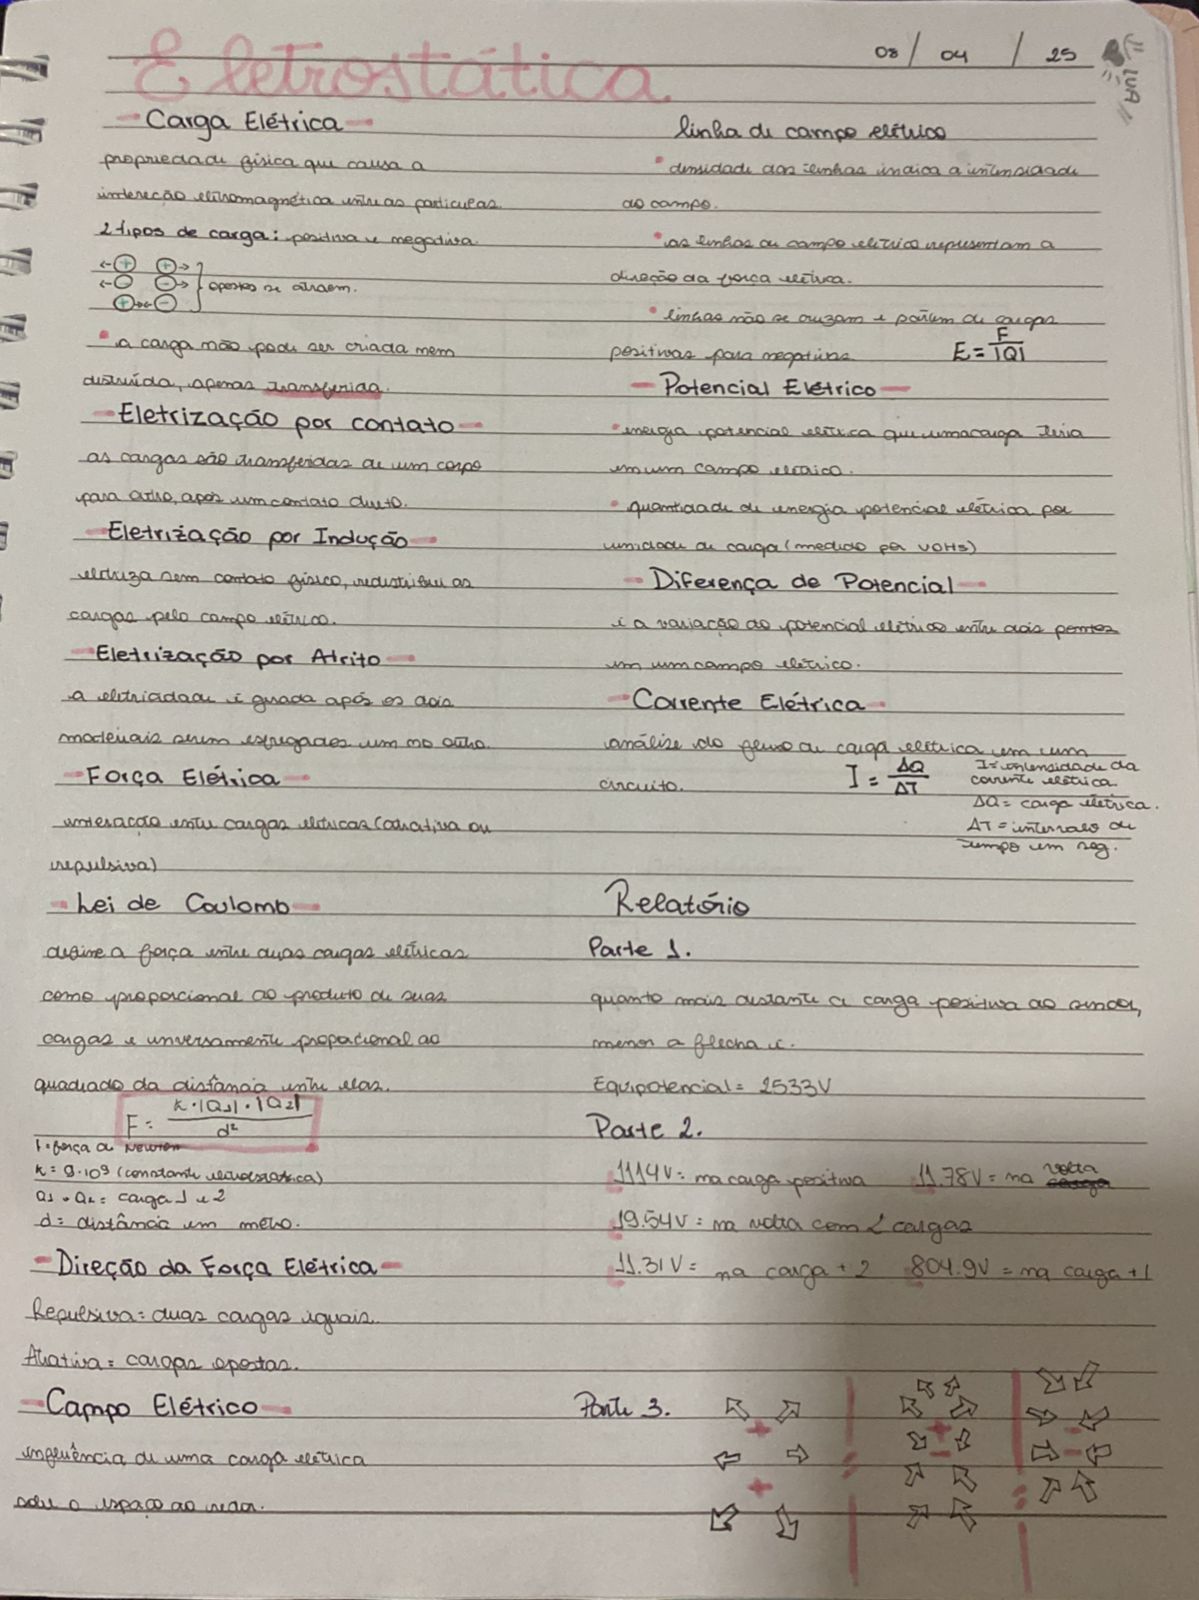 Eletrostática
08 / 04 / 25
LUA
Carga Elétrica
propriedade física que causa a
intereção eletromagnética entre as particulas.
2 tipos de carga: positiva e negativa
←(+) (+)→
←(-) (-)→ } opostos se atraem.
(+)→←(-)
• a carga não pode ser criada nem
destruída, apenas transferida.
Eletrização por contato
as cargas são transferidas de um corpo
para outro, após um contato direto.
Eletrização por Indução
eletriza sem contato físico, redistribui as
cargas pelo campo elétrico.
Eletrização por Atrito
a eletricidade é gerada após os dois
materiais serem esfregados um no outro.
Força Elétrica
interação entre cargas elétricas (atrativa ou
repulsiva)
Lei de Coulomb
define a força entre duas cargas elétricas
como proporcional ao produto de suas
cargas e inversamente proporcional ao
quadrado da distância entre elas.
F = K·|Q1|·|Q2| / d²
F = força a Newton
K = 9·10⁹ (constante eletrostática)
Q1 e Q2 = carga 1 e 2
d = distância em metro.
Direção da Força Elétrica
Repulsiva = duas cargas iguais.
Atrativa = cargas opostas.
Campo Elétrico
influência de uma carga elétrica
sobre o espaço ao redor.
linha de campo elétrico
• densidade das linhas indica a intensidade
do campo.
• as linhas de campo elétrico representam a
direção da força elétrica.
• linhas não se cruzam e partem de cargas
positivas para negativas E = F / |Q|
Potencial Elétrico
• energia potencial elétrica que uma carga teria
em um campo elétrico.
• quantidade de energia potencial elétrica por
unidade de carga (medido por volts)
Diferença de Potencial
é a variação do potencial elétrico entre dois pontos
em um campo elétrico.
Corrente Elétrica
análise do fluxo de carga elétrica em um
circuito.
I = ΔQ / ΔT
I = intensidade da
corrente elétrica
ΔQ = carga elétrica.
ΔT = intervalo de
tempo em seg.
Relatório
Parte 1.
quanto mais distante a carga positiva ao sensor,
menor a flecha é.
Equipotencial = 2533V
Parte 2.
1114V = na carga positiva 11.78V = na volta
19.54V = na volta com 2 cargas
11.31V = na carga + 2 804.9V = na carga + 1
Parte 3.
+ + - -
+ - -